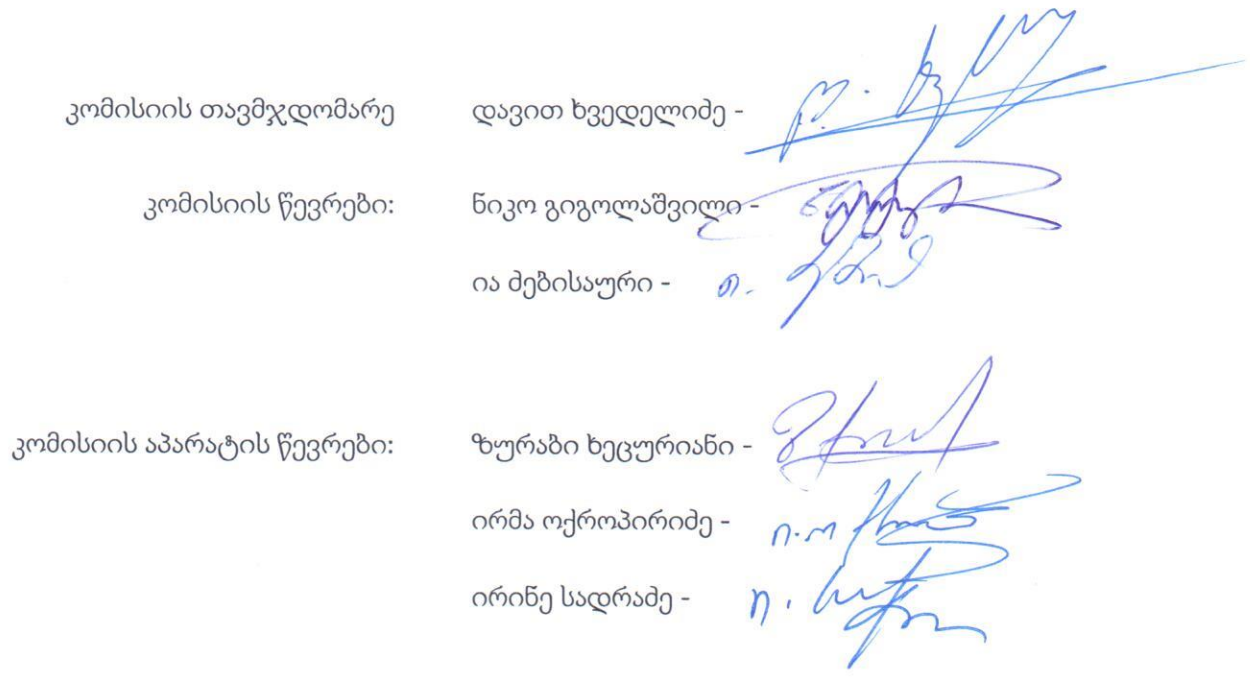 კომისიის თავმჯდომარე დავით ხვედელიძე -
კომისიის წევრები: ნიკო გიგოლაშვილი -
ია ძებისაური -
კომისიის აპარატის წევრები: ზურაბი ხეცურიანი -
ირმა ოქროპირიძე -
ირინე სადრაძე -